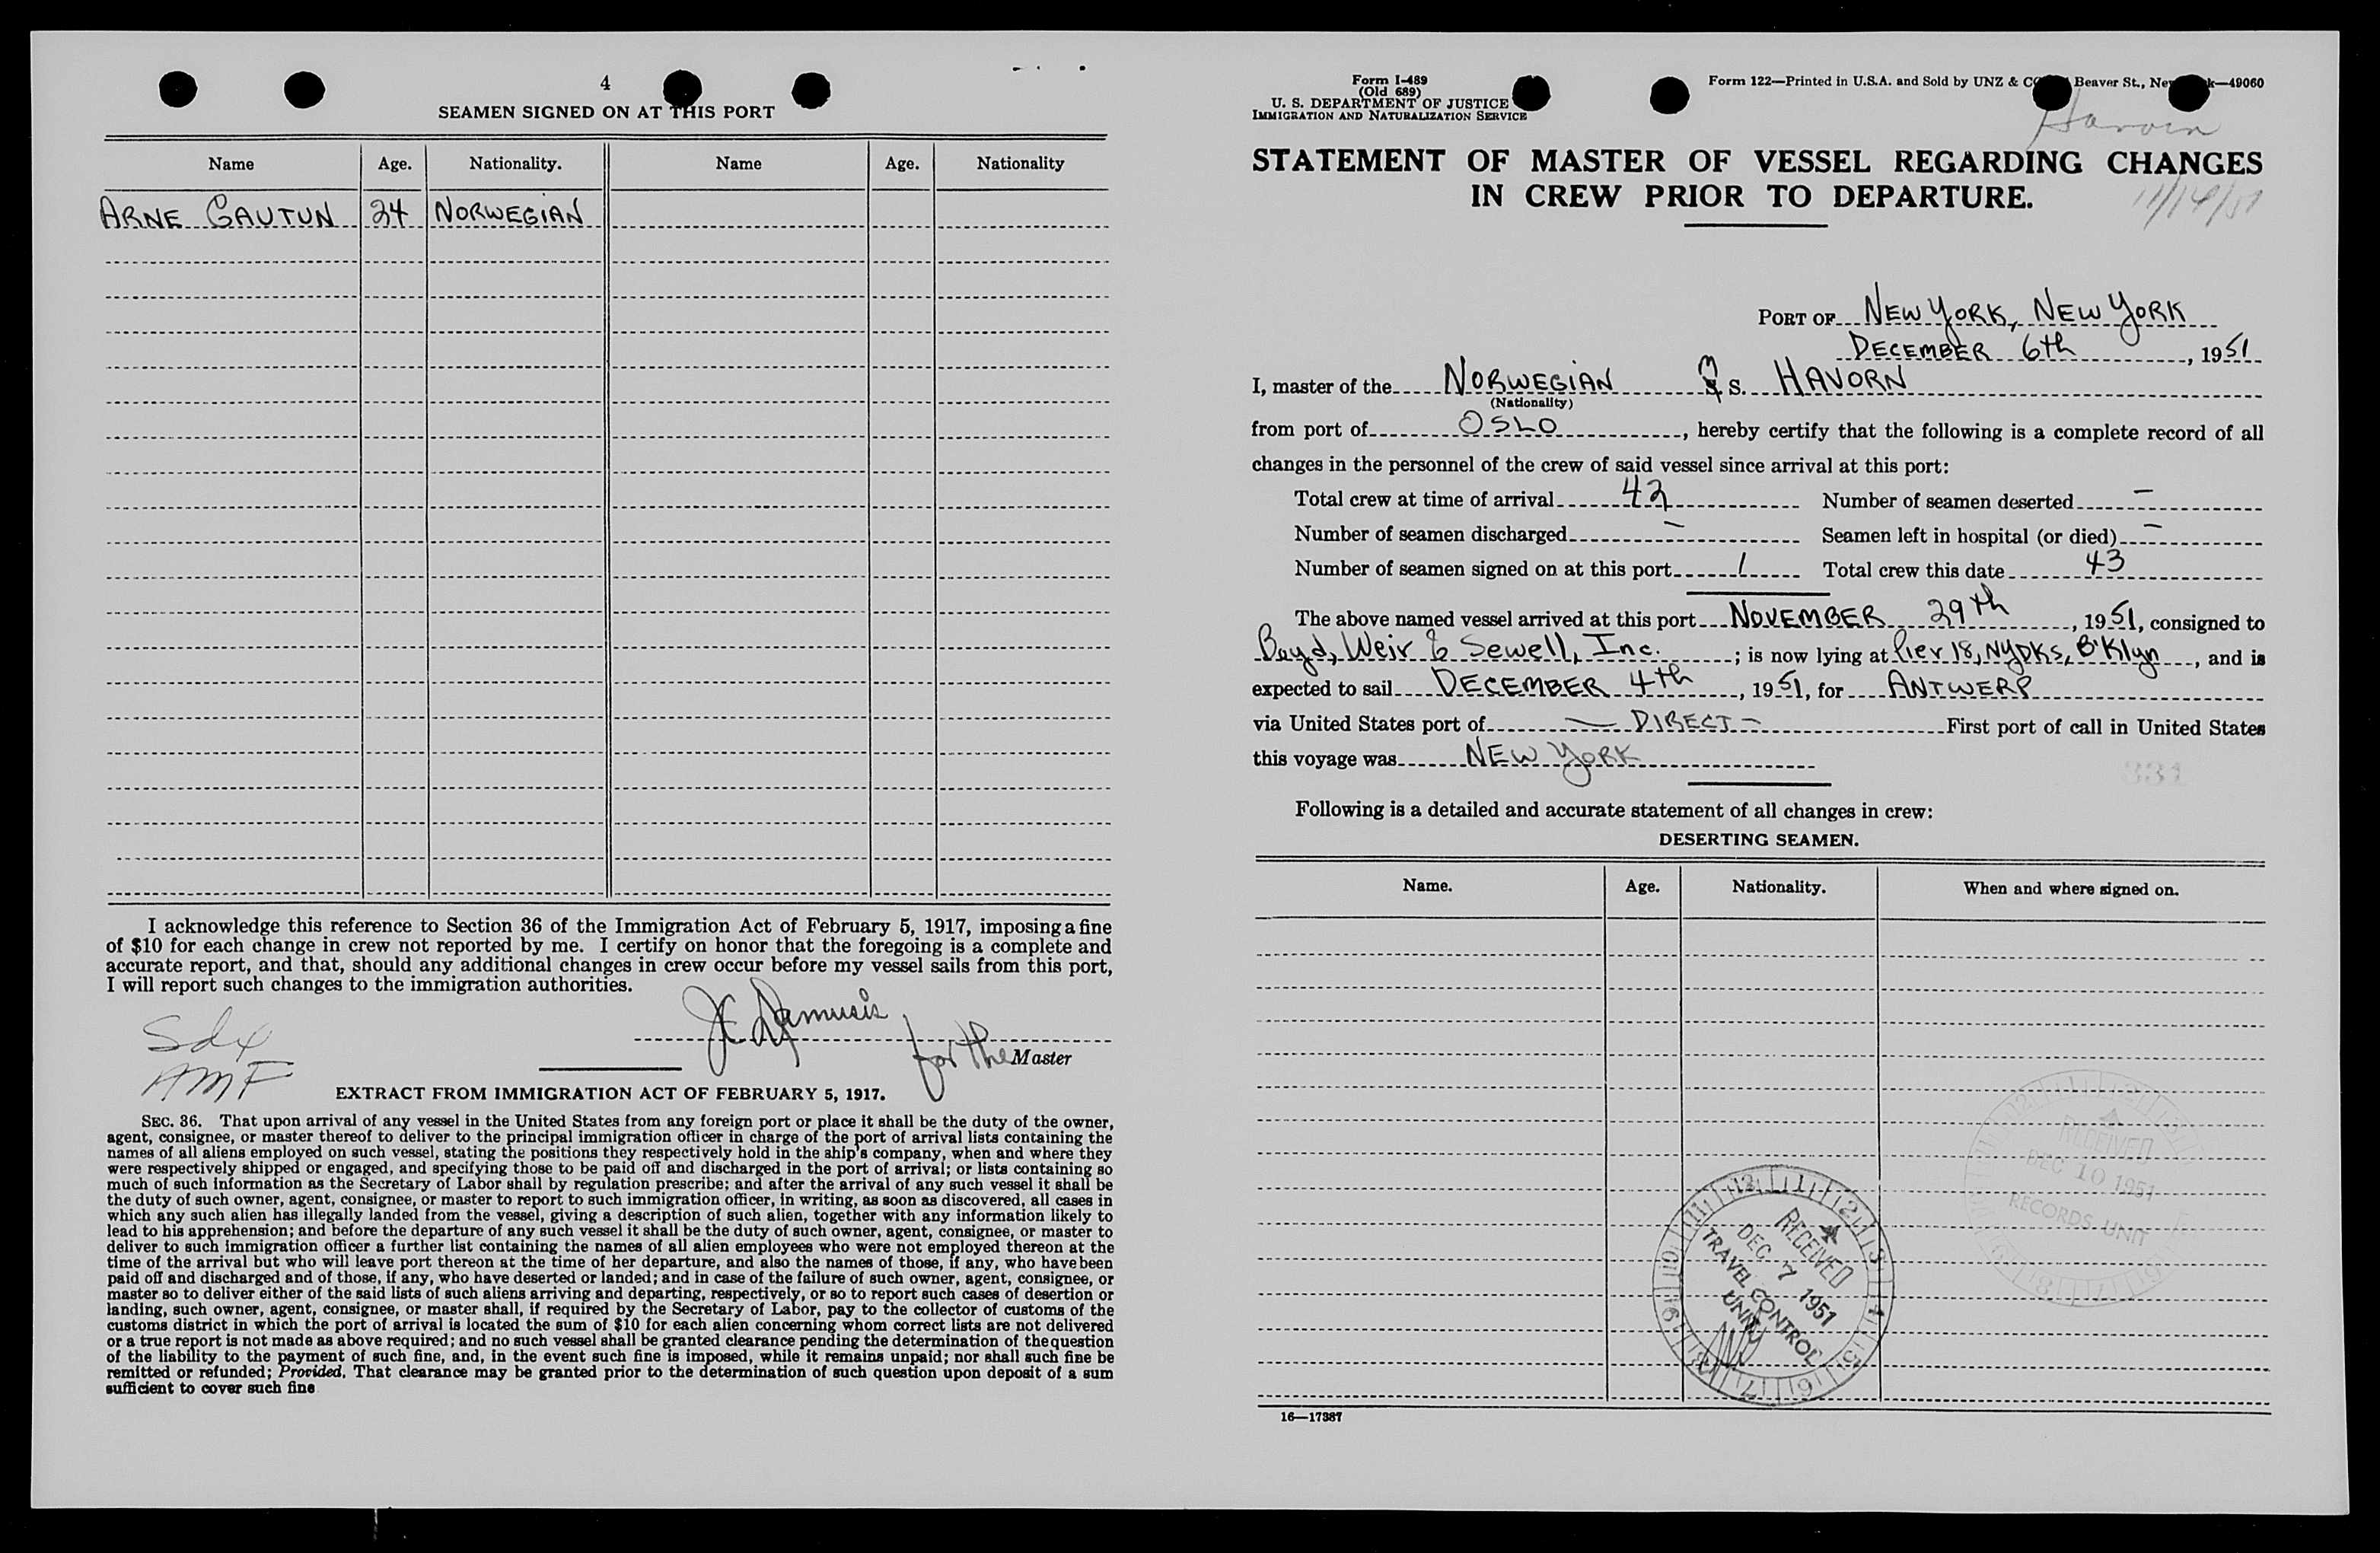 4
SEAMEN SIGNED ON AT THIS PORT
Name Age. Nationality. Name Age. Nationality
ARNE GAUTUN 24 NORWEGIAN
I acknowledge this reference to Section 36 of the Immigration Act of February 5, 1917, imposing a fine
of $10 for each change in crew not reported by me. I certify on honor that the foregoing is a complete and
accurate report, and that, should any additional changes in crew occur before my vessel sails from this port,
I will report such changes to the immigration authorities.
for the Master
AMF
EXTRACT FROM IMMIGRATION ACT OF FEBRUARY 5, 1917.
SEC. 36. That upon arrival of any vessel in the United States from any foreign port or place it shall be the duty of the owner,
agent, consignee, or master thereof to deliver to the principal immigration officer in charge of the port of arrival lists containing the
names of all aliens employed on such vessel, stating the positions they respectively hold in the ship's company, when and where they
were respectively shipped or engaged, and specifying those to be paid off and discharged in the port of arrival; or lists containing so
much of such information as the Secretary of Labor shall by regulation prescribe; and after the arrival of any such vessel it shall be
the duty of such owner, agent, consignee, or master to report to such immigration officer, in writing, as soon as discovered, all cases in
which any such alien has illegally landed from the vessel, giving a description of such alien, together with any information likely to
lead to his apprehension; and before the departure of any such vessel it shall be the duty of such owner, agent, consignee, or master to
deliver to such immigration officer a further list containing the names of all alien employees who were not employed thereon at the
time of the arrival but who will leave port thereon at the time of her departure, and also the names of those, if any, who have been
paid off and discharged and of those, if any, who have deserted or landed; and in case of the failure of such owner, agent, consignee, or
master so to deliver either of the said lists of such aliens arriving and departing, respectively, or so to report such cases of desertion or
landing, such owner, agent, consignee, or master shall, if required by the Secretary of Labor, pay to the collector of customs of the
customs district in which the port of arrival is located the sum of $10 for each alien concerning whom correct lists are not delivered
or a true report is not made as above required; and no such vessel shall be granted clearance pending the determination of the question
of the liability to the payment of such fine, and, in the event such fine is imposed, while it remains unpaid; nor shall such fine be
remitted or refunded; Provided, That clearance may be granted prior to the determination of such question upon deposit of a sum
sufficient to cover such fine
Form I-489
(Old 689)
U. S. DEPARTMENT OF JUSTICE
IMMIGRATION AND NATURALIZATION SERVICE
Form 122—Printed in U.S.A. and Sold by UNZ & Beaver St., —49060
STATEMENT OF MASTER OF VESSEL REGARDING CHANGES
IN CREW PRIOR TO DEPARTURE.
PORT OF NEW YORK, NEW YORK
DECEMBER 6th, 1951
I, master of the NORWEGIAN M S. HAVORN
(Nationality)
from port of OSLO, hereby certify that the following is a complete record of all
changes in the personnel of the crew of said vessel since arrival at this port:
Total crew at time of arrival 42 Number of seamen deserted —
Number of seamen discharged — Seamen left in hospital (or died) —
Number of seamen signed on at this port 1 Total crew this date 43
The above named vessel arrived at this port NOVEMBER 29th, 1951, consigned to
Boyd, Weir & Sewell, Inc.; is now lying at Pier 18, NYDKS, B'Klyn, and is
expected to sail DECEMBER 4th, 1951, for ANTWERP
via United States port of — DIRECT — First port of call in United States
this voyage was NEW YORK
331
Following is a detailed and accurate statement of all changes in crew:
DESERTING SEAMEN.
Name. Age. Nationality. When and where signed on.
RECEIVED
DEC 10 1951
RECORDS UNIT
RECEIVED
DEC 7 1951
TRAVEL CONTROL
UNIT
16—17387